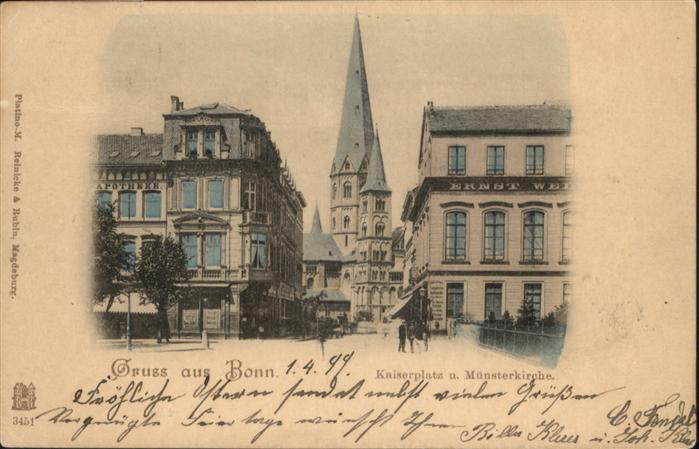 Platino-M. Reinicke & Rubin, Magdeburg.
APOTHEKE.
ERNST WEI
Gruss aus Bonn. 1. 4. 99
Kaiserplatz u. Münsterkirche.
3451
Fröhliche Ostern sendet nebst vielen Grüßen
Vergnügte Feiertage wünscht Ihnen
C.
u. Joh.